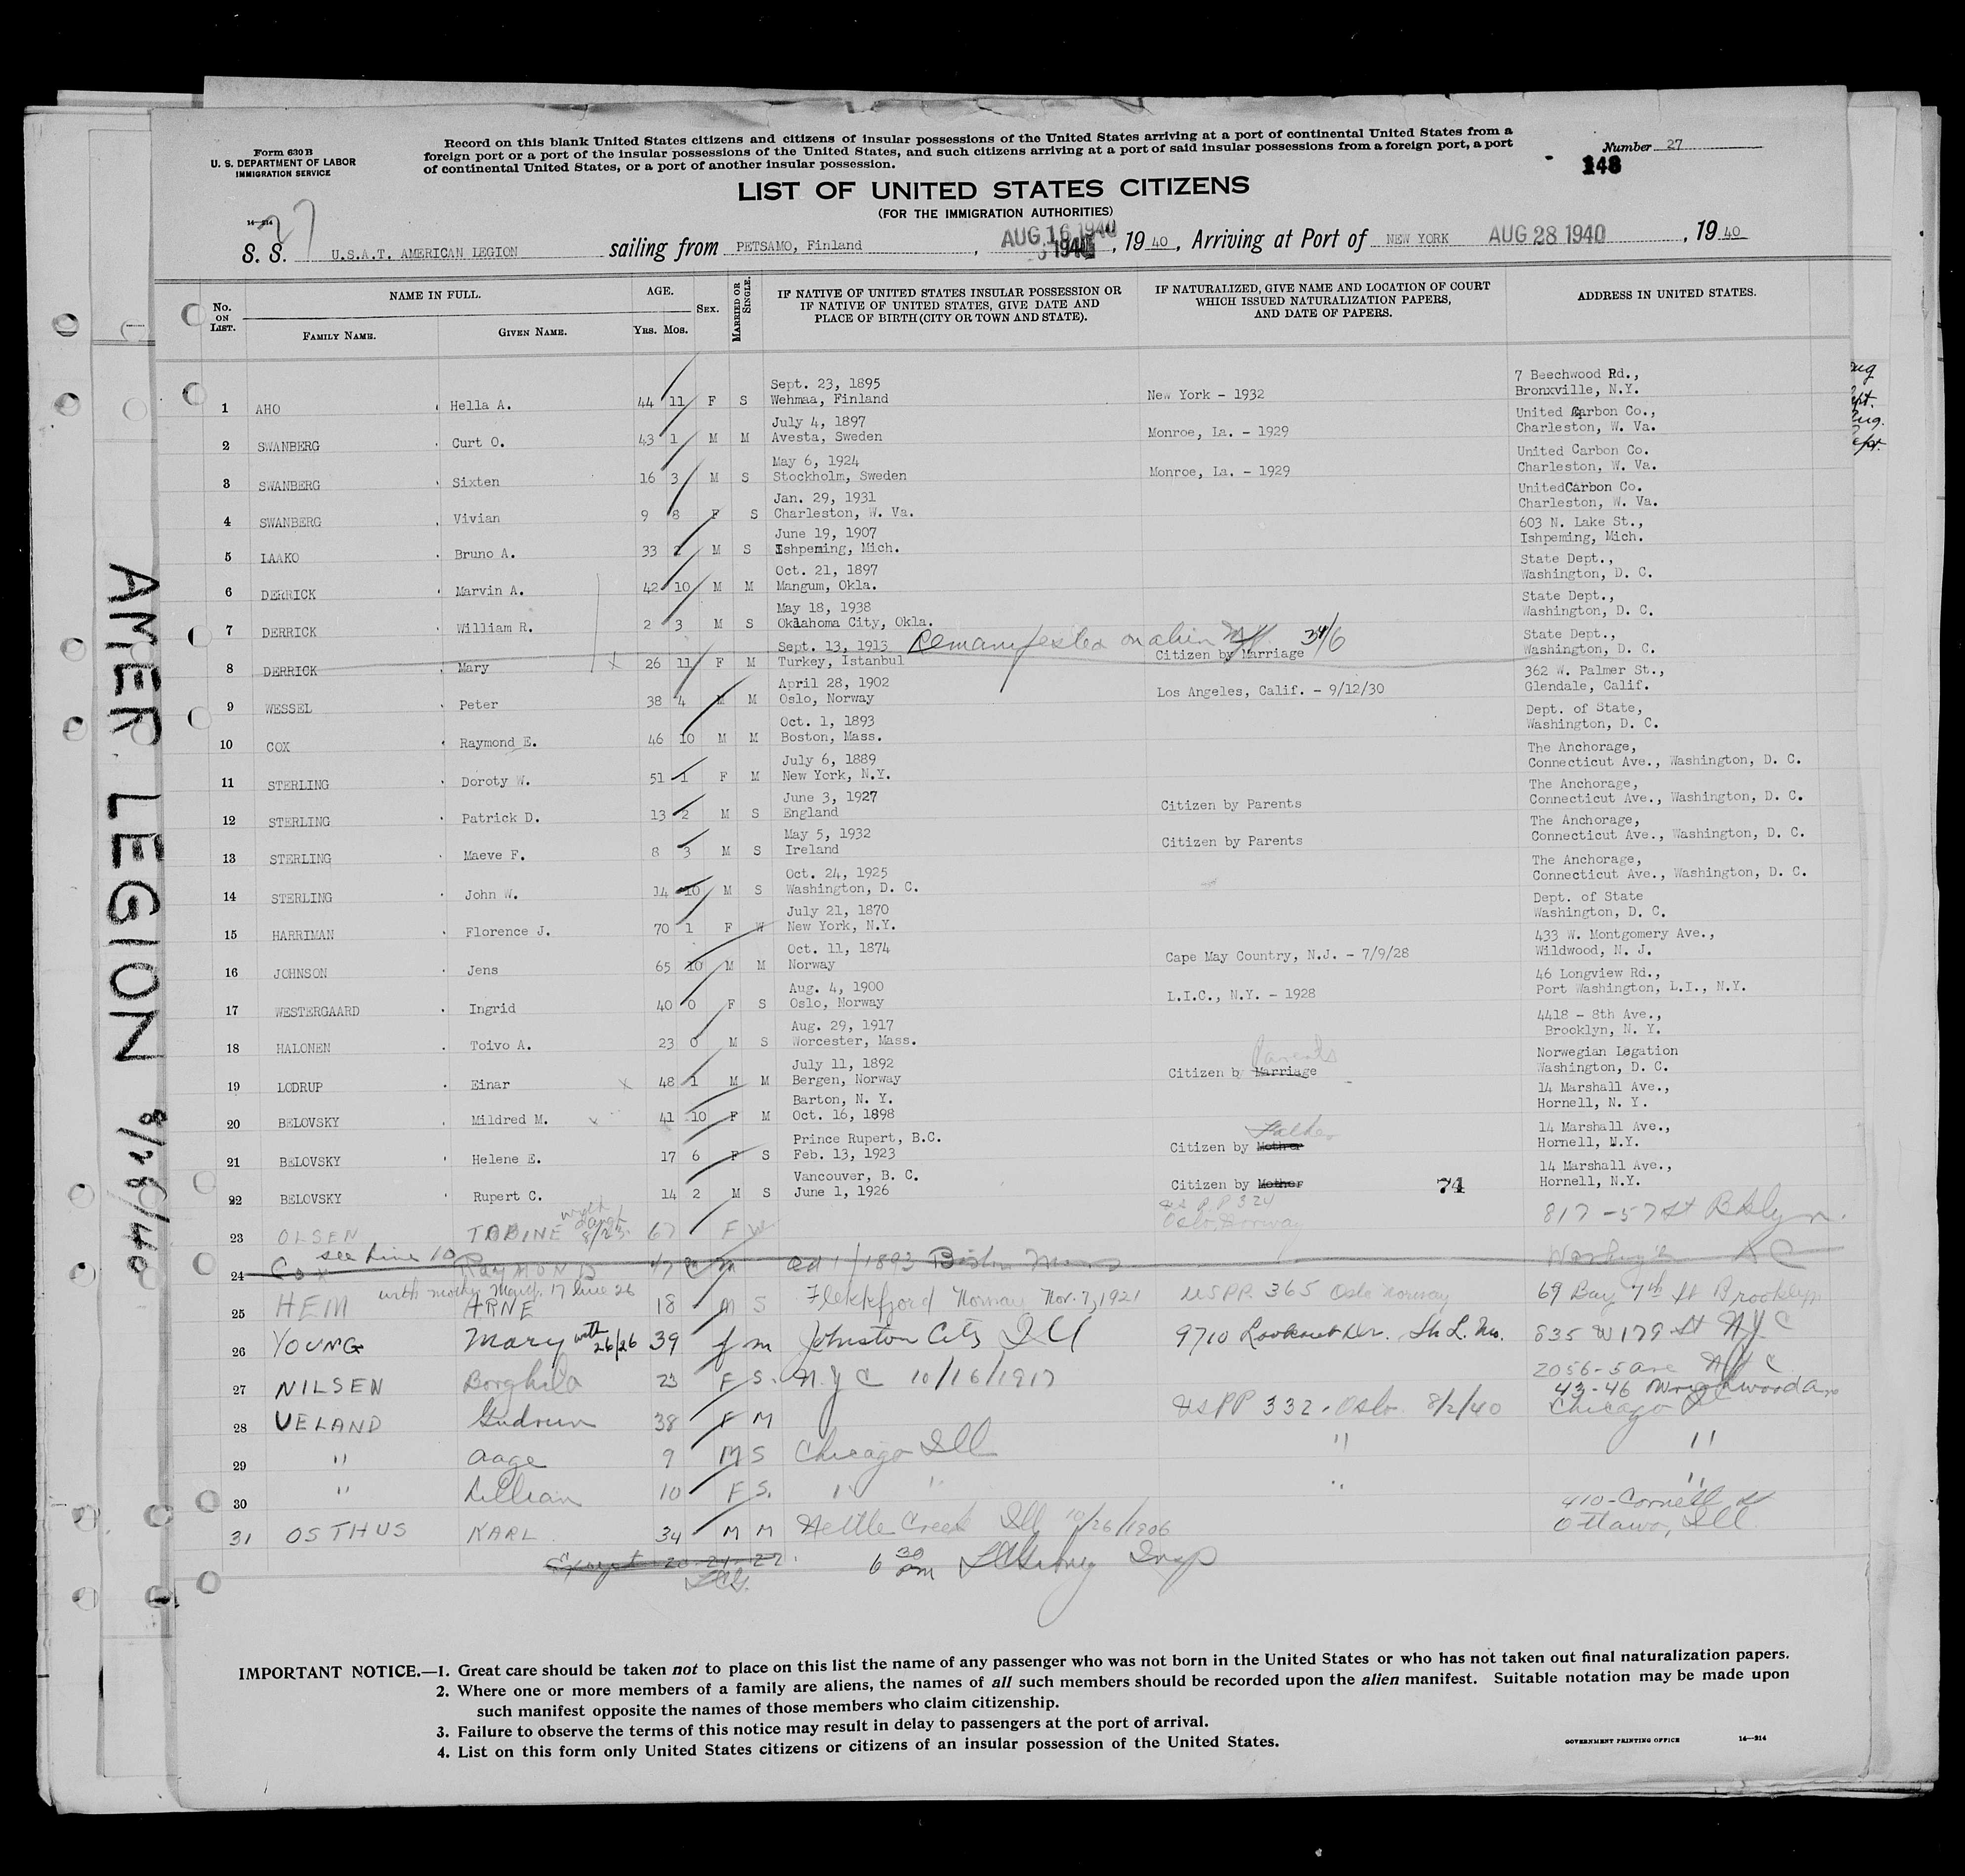 Form 630 B
U. S. DEPARTMENT OF LABOR
IMMIGRATION SERVICE
Record on this blank United States citizens and citizens of insular possessions of the United States arriving at a port of continental United States from a
foreign port or a port of the insular possessions of the United States, and such citizens arriving at a port of said insular possessions from a foreign port, a port
of continental United States, or a port of another insular possession.
Number 27
148
LIST OF UNITED STATES CITIZENS
(FOR THE IMMIGRATION AUTHORITIES)
14—214
27
S. S. U.S.A.T. AMERICAN LEGION sailing from PETSAMO, Finland, AUG 16 1940, 19 40, Arriving at Port of NEW YORK AUG 28 1940, 19 40
No. ON LIST. NAME IN FULL. FAMILY NAME. GIVEN NAME. AGE. YRS. MOS. SEX. MARRIED OR SINGLE. IF NATIVE OF UNITED STATES INSULAR POSSESSION OR IF NATIVE OF UNITED STATES, GIVE DATE AND PLACE OF BIRTH (CITY OR TOWN AND STATE). IF NATURALIZED, GIVE NAME AND LOCATION OF COURT WHICH ISSUED NATURALIZATION PAPERS, AND DATE OF PAPERS. ADDRESS IN UNITED STATES.
Sept. 23, 1895 7 Beechwood Rd.,
1 AHO Hella A. 44 11 F S Wehmaa, Finland New York - 1932 Bronxville, N.Y.
July 4, 1897 United Carbon Co.,
2 SWANBERG Curt O. 43 1 M M Avesta, Sweden Monroe, La. - 1929 Charleston, W. Va.
May 6, 1924 United Carbon Co.
3 SWANBERG Sixten 16 3 M S Stockholm, Sweden Monroe, La. - 1929 Charleston, W. Va.
Jan. 29, 1931 UnitedCarbon Co.
4 SWANBERG Vivian 9 8 F S Charleston, W. Va. Charleston, W. Va.
June 19, 1907 603 N. Lake St.,
5 LAAKO Bruno A. 33 2 M S Ishpeming, Mich. Ishpeming, Mich.
Oct. 21, 1897 State Dept.,
6 DERRICK Marvin A. 42 10 M M Mangum, Okla. Washington, D. C.
May 18, 1938 State Dept.,
7 DERRICK William R. 2 3 M S Oklahoma City, Okla. Washington, D. C.
Sept. 13, 1913 Remanifested on alien Mf. 34/6 State Dept.,
8 DERRICK Mary x 26 11 F M Turkey, Istanbul Citizen by Marriage Washington, D. C.
April 28, 1902 362 W. Palmer St.,
9 WESSEL Peter 38 4 M M Oslo, Norway Los Angeles, Calif. - 9/12/30 Glendale, Calif.
Oct. 1, 1893 Dept. of State,
10 COX Raymond E. 46 10 M M Boston, Mass. Washington, D. C.
July 6, 1889 The Anchorage,
11 STERLING Doroty W. 51 1 F M New York, N.Y. Connecticut Ave., Washington, D. C.
June 3, 1927 The Anchorage,
12 STERLING Patrick D. 13 2 M S England Citizen by Parents Connecticut Ave., Washington, D. C.
May 5, 1932 The Anchorage,
13 STERLING Maeve F. 8 3 M S Ireland Citizen by Parents Connecticut Ave., Washington, D. C.
Oct. 24, 1925 The Anchorage,
14 STERLING John W. 14 10 M S Washington, D. C. Connecticut Ave., Washington, D. C.
July 21, 1870 Dept. of State
15 HARRIMAN Florence J. 70 1 F W New York, N.Y. Washington, D. C.
Oct. 11, 1874 433 W. Montgomery Ave.,
16 JOHNSON Jens 65 10 M M Norway Cape May Country, N.J. - 7/9/28 Wildwood, N. J.
Aug. 4, 1900 46 Longview Rd.,
17 WESTERGAARD Ingrid 40 0 F S Oslo, Norway L.I.C., N.Y. - 1928 Port Washington, L.I., N.Y.
Aug. 29, 1917 4418 - 8th Ave.,
18 HALONEN Toivo A. 23 0 M S Worcester, Mass. Brooklyn, N. Y.
July 11, 1892 Parents Norwegian Legation
19 LODRUP Einar x 48 1 M M Bergen, Norway Citizen by Marriage Washington, D. C.
Barton, N. Y. 14 Marshall Ave.,
20 BELOVSKY Mildred M. x 41 10 F M Oct. 16, 1898 Hornell, N. Y.
Prince Rupert, B.C. Father 14 Marshall Ave.,
21 BELOVSKY Helene E. 17 6 F S Feb. 13, 1923 Citizen by Mother Hornell, N.Y.
Vancouver, B. C. 14 Marshall Ave.,
22 BELOVSKY Rupert C. 14 2 M S June 1, 1926 Citizen by Mother 74 Hornell, N.Y.
23 OLSEN TOBINE with daugh 8/23 67 F W US PP 324 Oslo, Norway 817 - 57 St Bklyn.
24 Cox see line 10 RAYMOND 47 m m Oct 1/1893 Boston Mass Washington DC
25 HEM with mother Manif. 17 line 26 ARNE 18 M S Flekkefjord Norway Nov. 7, 1921 US PP. 365 Oslo Norway 69 Bay 7th St Brooklyn
26 YOUNG Mary with 26/26 39 f m Johnston City Ill 9710 Lookout Dr. St. L. Mo. 835 W 179 St NYC
27 NILSEN Borghild 23 F S. N.Y C 10/16/1917 2056-5 ave NYC
43-46
28 VELAND Gudrun 38 F M US PP 332. Oslo 8/2/40 Chicago Ill
29 " Aage 9 M S Chicago Ill " "
30 " Lillian 10 F S. " " " "
410-Cornell St
31 OSTHUS KARL 34 M M Nettle Creek Ill 10/26/1906 Ottawa, Ill
Except 20-21-22 6 30 pm Insp
IMPORTANT NOTICE.—1. Great care should be taken not to place on this list the name of any passenger who was not born in the United States or who has not taken out final naturalization papers.
2. Where one or more members of a family are aliens, the names of all such members should be recorded upon the alien manifest. Suitable notation may be made upon
such manifest opposite the names of those members who claim citizenship.
3. Failure to observe the terms of this notice may result in delay to passengers at the port of arrival.
4. List on this form only United States citizens or citizens of an insular possession of the United States.
GOVERNMENT PRINTING OFFICE 14—214
AMER LEGION 8/28/40